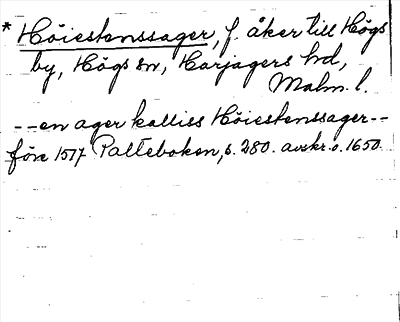 * Höiestenssager, f. åker till Högs
by, Högs sn, Harjagers hd,
Malm. l.
--en ager kalliss Höiestenssager--
före 1517 Palteboken, s. 280. avskr. o. 1650.